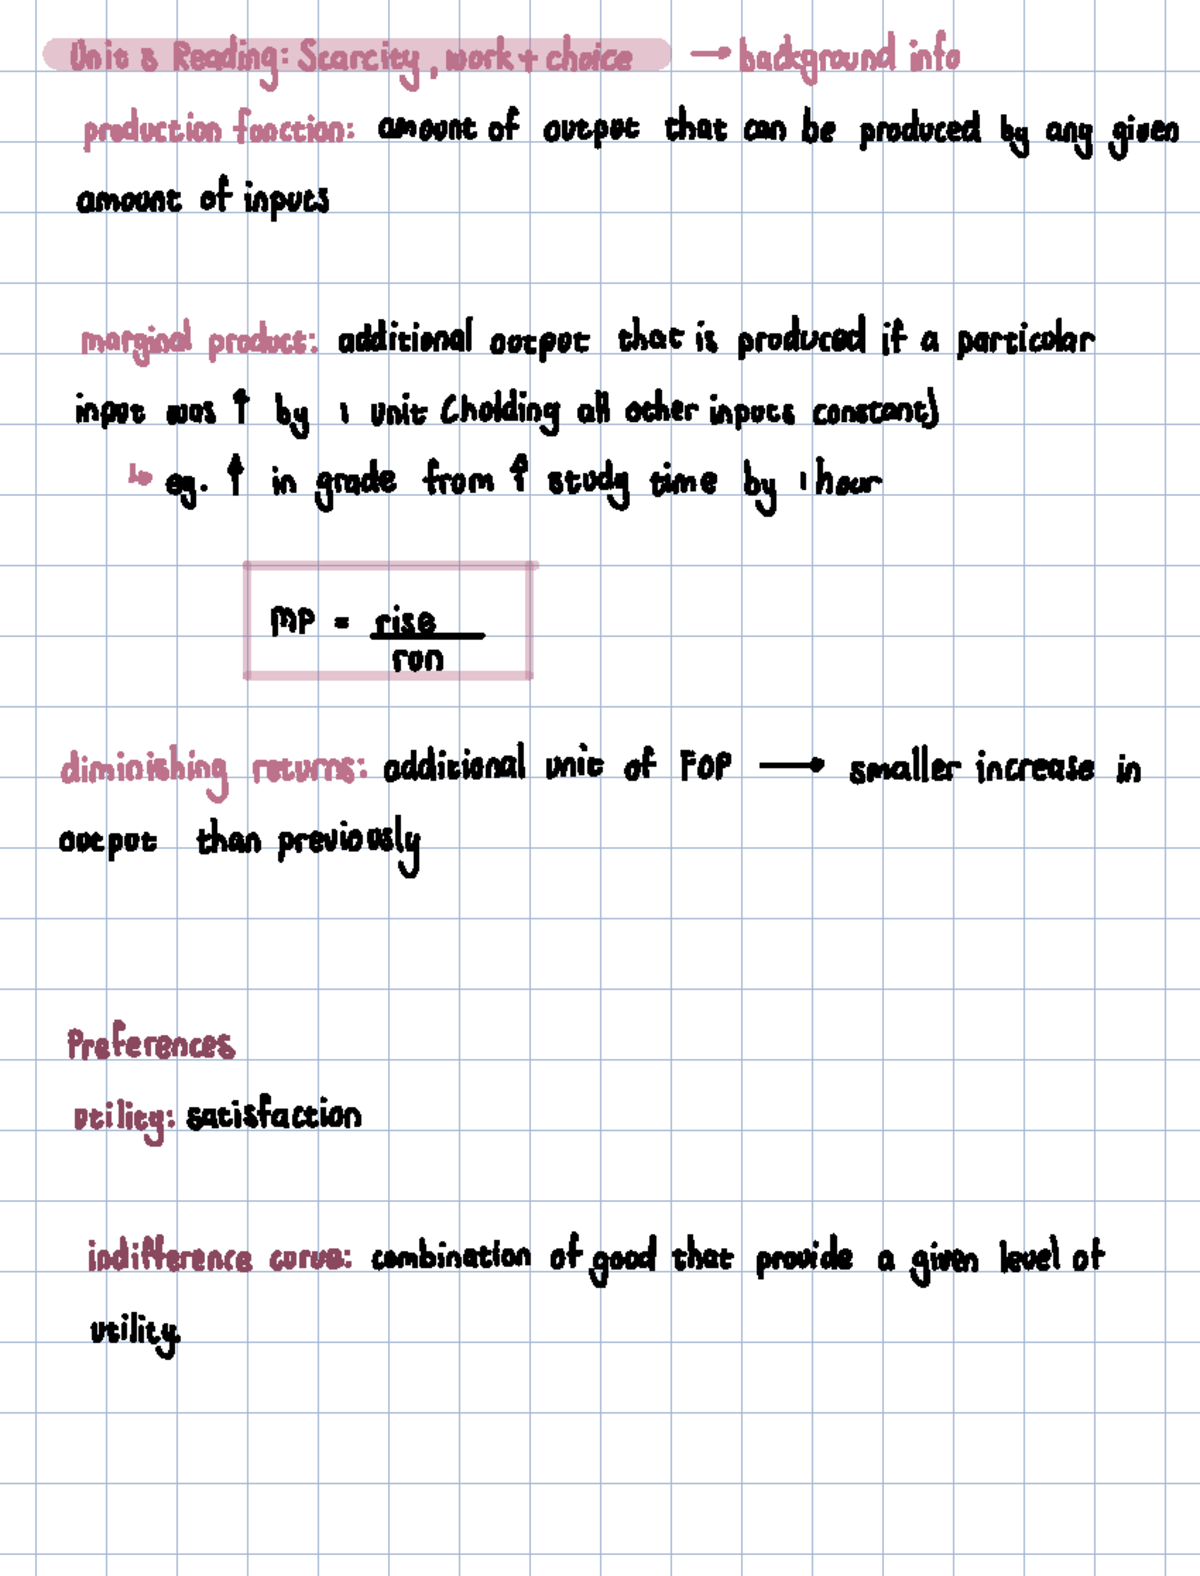 Unit 3 Reading: Scarcity, work + choice → background info
production function: amount of output that can be produced by any given
amount of inputs
marginal product: additional output that is produced if a particular
input was ↑ by 1 unit (holding all other inputs constant)
↳ eg. ↑ in grade from ↑ study time by 1 hour
MP = rise
run
diminishing returns: additional unit of FOP → smaller increase in
output than previously
Preferences
utility: satisfaction
indifference curve: combination of good that provide a given level of
utility.